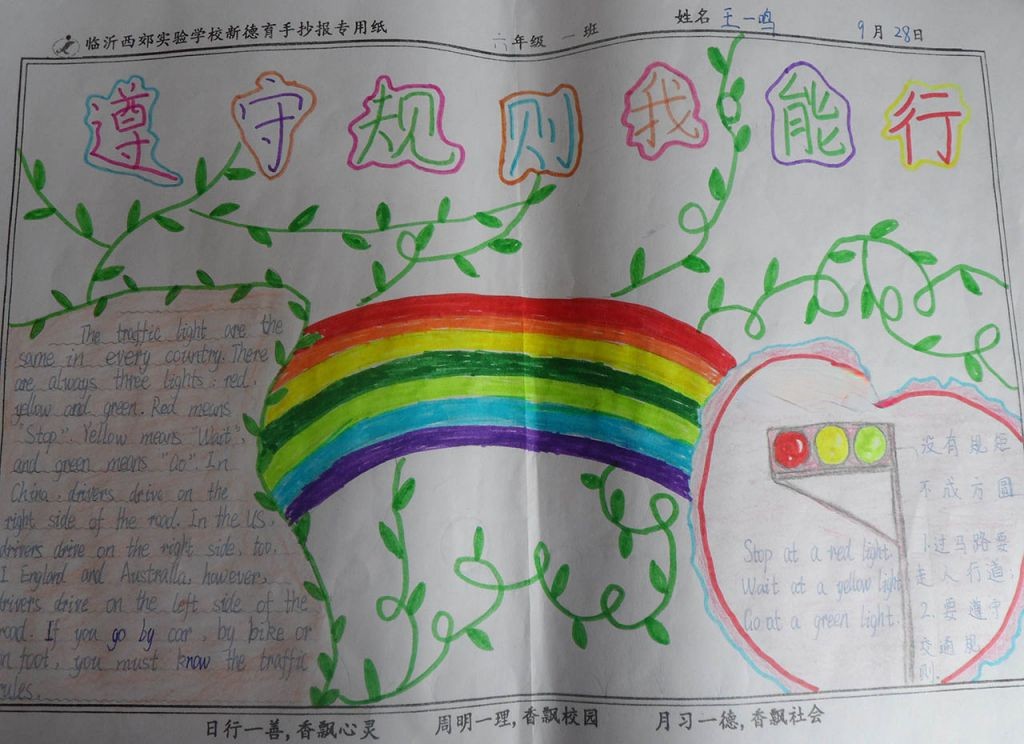 临沂西郊实验学校新德育手抄报专用纸
六年级 一班
姓名 王一鸣
9月28日
遵守规则我能行
The traffic light are the
same in every country. There
are always three lights: red,
yellow and green. Red means
"Stop". Yellow means "Wait",
and green means "Go". In
China, drivers drive on the
right side of the road. In the US,
drivers drive on the right side, too.
I England and Australla, however,
drivers drive on the left side of the
road. If you go by car, by bike or
on foot, you must know the traffic
rules.
Stop at a red light.
Wait at a yellow light
Go at a green light.
没有规矩
不成方圆
1.过马路要
走人行道;
2.要遵守
交通规
则.
日行一善,香飘心灵 周明一理,香飘校园 月习一德,香飘社会